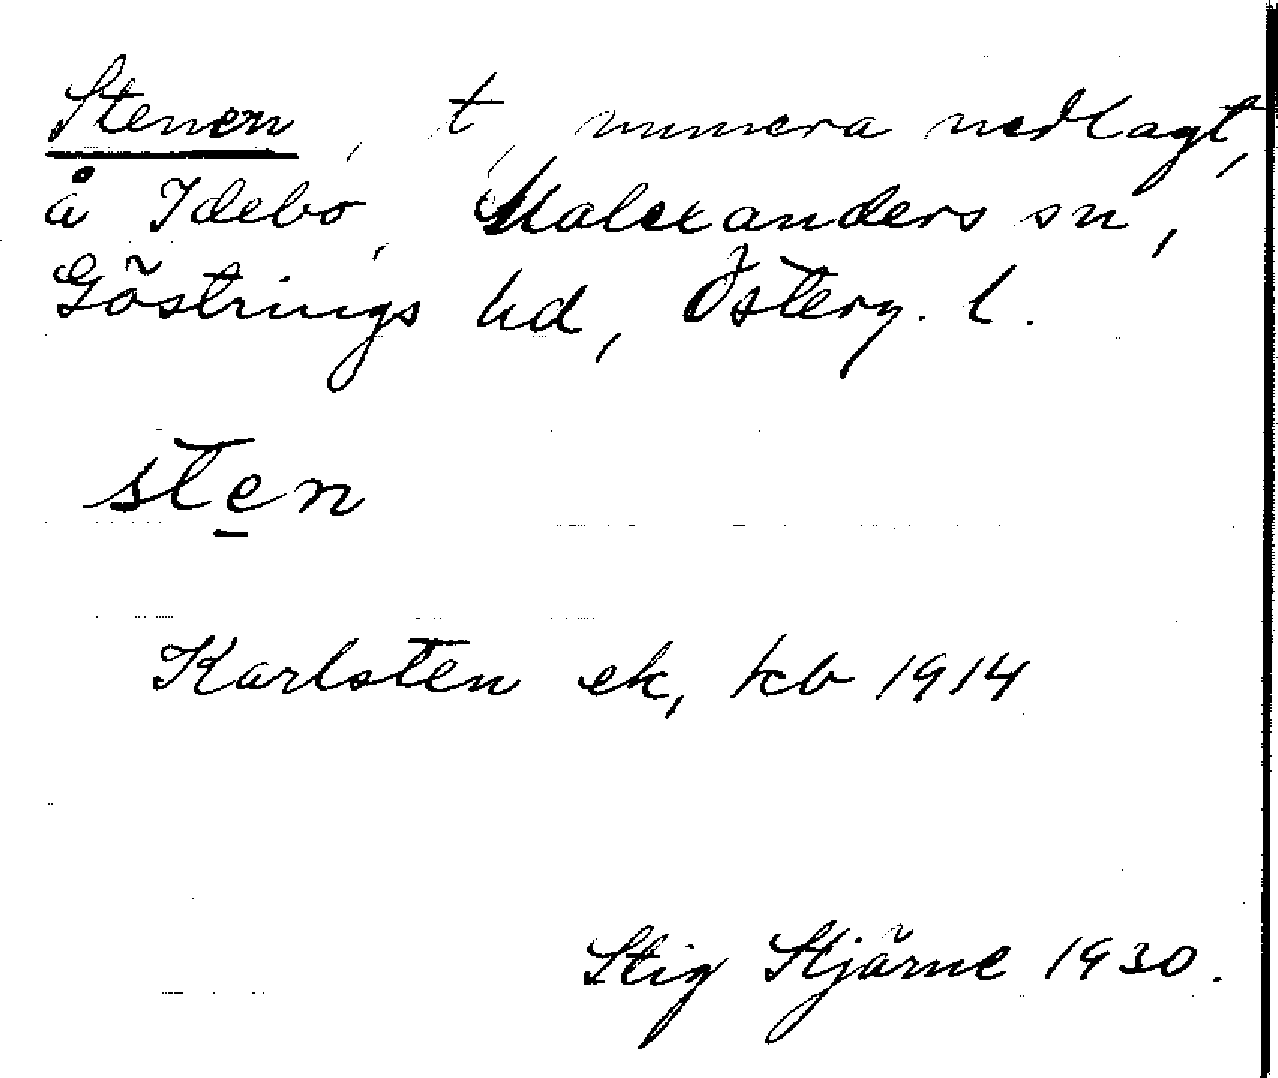 Stenen, t, numera nedlagt,
å Idebo, Malexanders sn,
Göstrings hd, Österg. l.
sten
Karlsten ek, kb 1914
Stig Stjärne 1930.